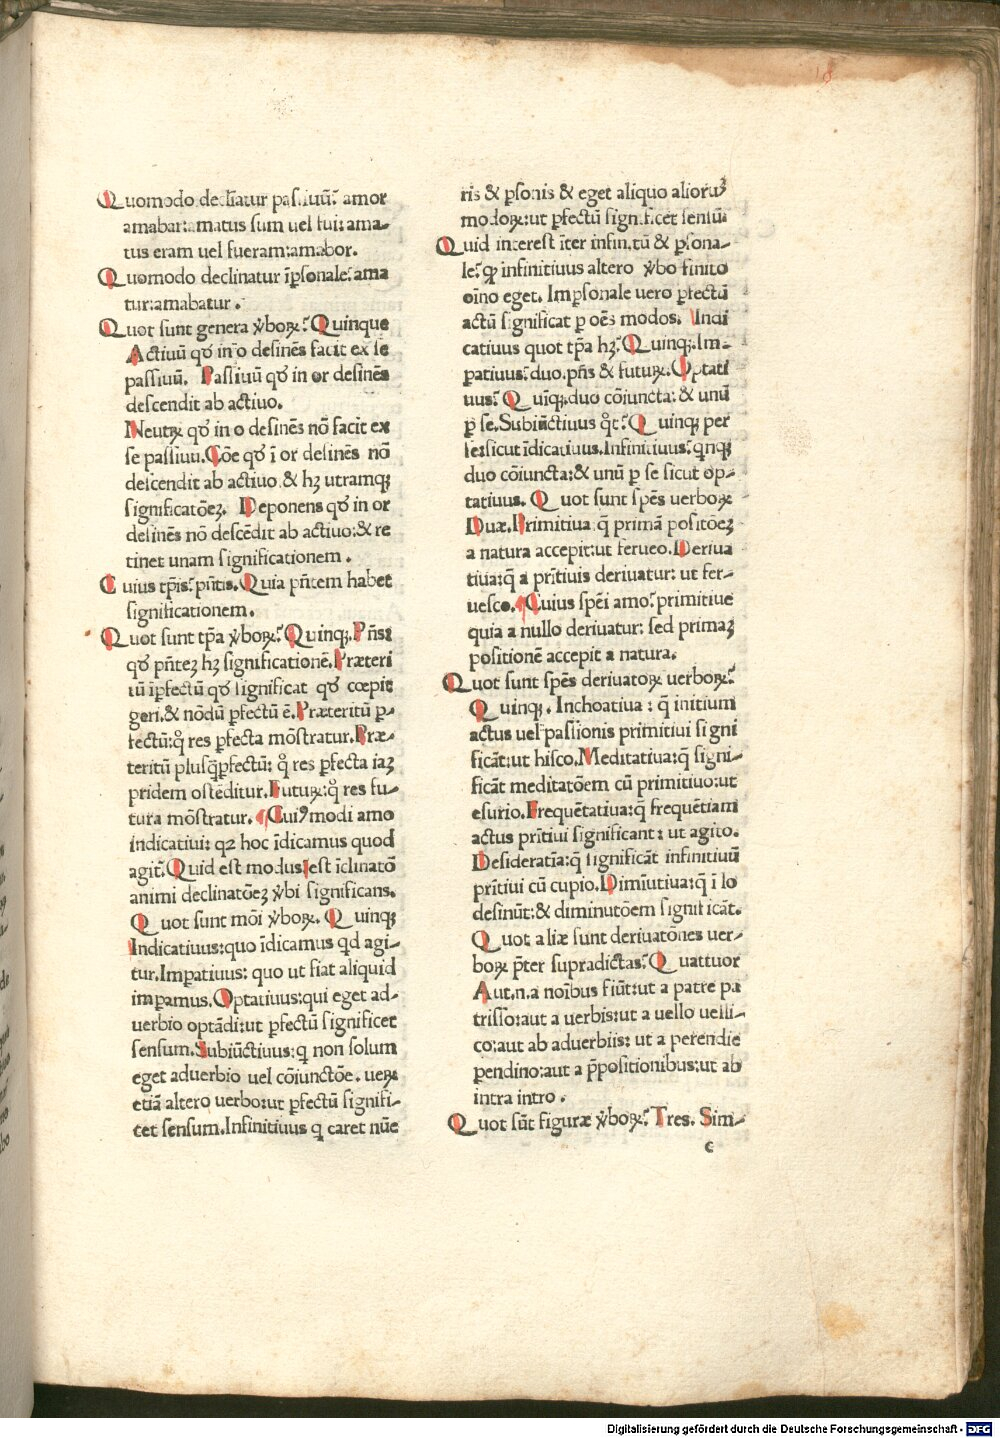 18
Quomodo declīatur passiuū? amor
amabar:amatus sum uel fui:ama-
tus eram uel fueram:amabor.
Quomodo declinatur īpsonale?ama
tur:amabatur.
Quot sunt genera v̄boꝝ? Quinque
Actiuū qđ in o desinēs facit ex se
passiuū. Passiuū qđ in or desinēs
descendit ab actiuo.
Neutrꝝ qđ in o desinēs nō facit ex
se passiuū.Cōe qđ ī or desinēs nō
descendit ab actiuo & hꝫ utramqꝫ
significatōeꝫ. Deponens qđ in or
desinēs nō descēdit ab actiuo:& re
tinet unam significationem.
Cuius tp̄is? pn̄tis. Quia pn̄tem habet
significationem.
Quot sunt tp̄a v̄boꝝ? Quinqꝫ. Pn̄s:
qđ pn̄teꝫ hꝫ significationē.Præteri
tū īpfectū qđ significat qđ cœpit
geri.& nōdū pfectū ē.Præteritū p-
fectū:qͦ res pfecta mōstratur.Præ-
teritū plusq̄pfectū: qͦ res pfecta iaꝫ
pridem ostēditur.Futurꝝ:qͦ res fu-
tura mōstratur. ¶Cuiꝯ modi amo
indicatiui: qꝛ hoc īdicamus quod
agit̄. Quid est modus?est īclinatō
animi declinatōeꝫ v̄bi significans.
Quot sunt mōi v̄boꝝ. Quinqꝫ
Indicatiuus:quo īdicamus qd agi-
tur.Impatiuus: quo ut fiat aliquid
impamus.Optatiuus:qui eget ad-
uerbio optādi:ut pfectū significet
sensum.Subiūctiuus:q non solum
eget aduerbio uel cōiunctōe. ueꝝ
etiā altero uerbo:ut pfectū signifi-
cet sensum.Infinitiuus q caret nūe
ris & psonis & eget aliquo alioruꝫ
modoꝝ:ut pfectū significet sensū
Quid interest īter infinitū & psona-
le? qꝫ infinitiuus altero v̄bo finito
oīno eget. Impsonale uero pfectū
actū significat p oēs modos. Indi
catiuus quot tp̄a hꝫ? Quinqꝫ.Im-
patiuus? duo.pn̄s & futurꝝ.Optati
uus? Quīqꝫ.duo cōiuncta: & unū
p se.Subiūctiuus qͦt? Quinqꝫ per
se:sicut īdicatiuus.Infinitiuus? qnqꝫ
duo cōiuncta:& unū p se sicut op-
tatiuus. Quot sunt spēs uerboꝝ
Duæ.Primitiua q̄ primā positōeꝫ
a natura accepit:ut ferueo.Deriua
tiua:q̄ a pr̄tiuis deriuatur: ut fer-
uesco.¶Cuius spēi amo? primitiue
quia a nullo deriuatur: sed primaꝫ
positionē accepit a natura.
Quot sunt spēs deriuatoꝝ uerboꝝ?
Quinqꝫ. Inchoatiua : q̄ initium
actus uel passionis primitiui signi
ficāt:ut hisco.Meditatiua:q̄ signi-
ficāt meditatōem cū primitiuo:ut
esurio.Frequētatiua:q̄ frequētiam
actus pr̄tiui significant: ut agito.
Desideratīa:q̄ significāt infinitiuū
pr̄tiui cū cupio.Dimīutiua:q̄ ī lo
desinūt:& diminutōem significāt.
Quot aliæ sunt deriuatōnes uer-
boꝝ p̄ter supradictas? Quattuor
Aut.n.a noībus fiūt:ut a patre pa
trisso:aut a uerbis:ut a uello uelli-
co:aut ab aduerbiis: ut a perendie
pendino:aut a p̄positionibus:ut ab
intra intro.
Quot sūt figuræ v̄boꝝ? Tres. Sim-
c
Digitalisierung gefördert durch die Deutsche Forschungsgemeinschaft - DFG